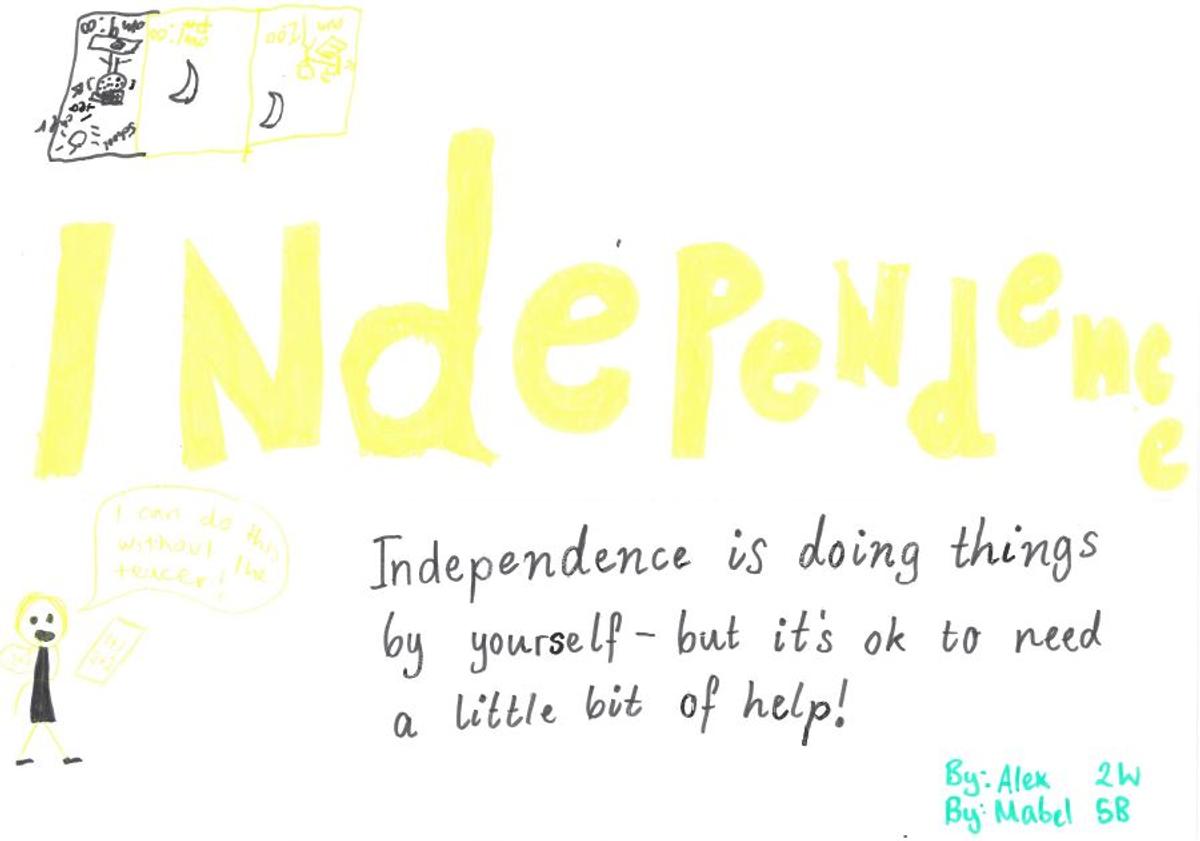 INdePeNdence
I can do this
without the
teacer!
Independence is doing things
by yourself - but it's ok to need
a little bit of help!
By: Alex 2W
By: Mabel 5B